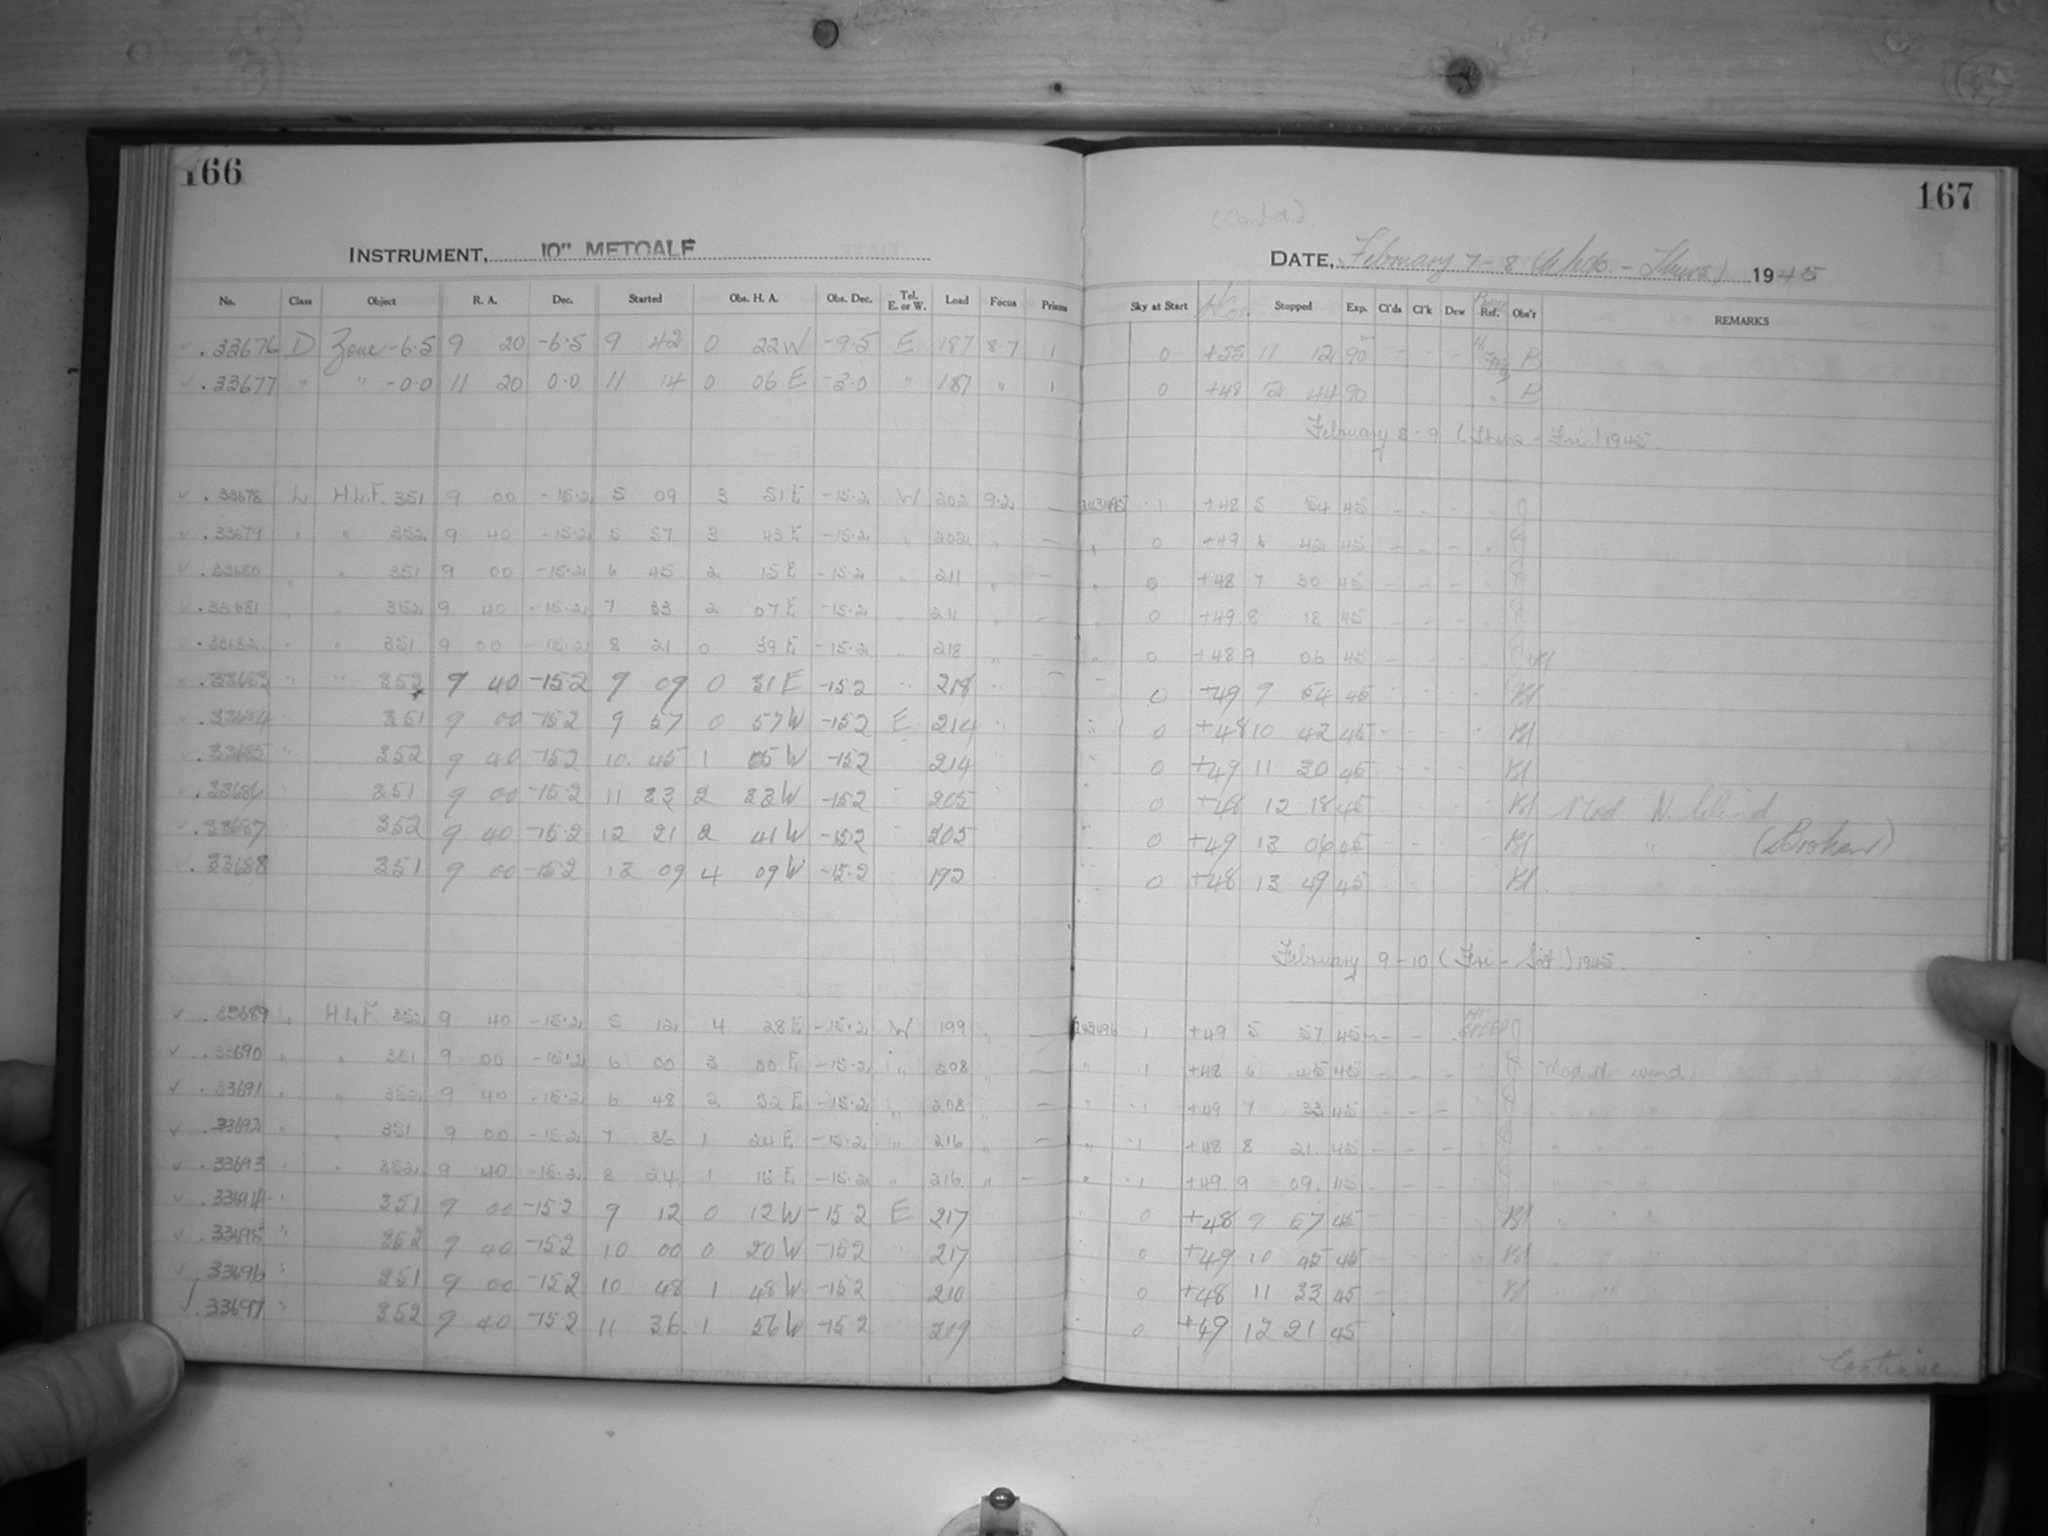 166
167
(Cont'd.)
INSTRUMENT, 10" METCALF
DATE, February 7-8 (Wed. - Thurs.) 1945
No. Class Object R. A. Dec. Started Obs. H. A. Obs. Dec. Tel. E. or W. Load Focus Prisms Sky at Start Stopped Exp. Cl'ds Cl'k Dew Ref. Obs'r REMARKS
33676 D Zone -6.5 9 20 -6.5 9 42 0 22W -9.5 E 187 8.7 1 0 +55 11 12 90 - - - B
33677 " " -0.0 11 20 0.0 11 14 0 06 E -3.0 " 187 " 1 0 +48 12 44 90 B
February 8-9 (Thurs - Fri.) 1945.
33678 L H.L.F. 351 9 00 -15.2 5 09 3 51 E -15.2 W 202 9.2 - 1 +48 5 54 45 - - -
33679 " " 352 9 40 -15.2 5 57 3 43 E -15.2 " 202 " - " 0 +49 6 42 45 - - -
33680 " " 351 9 00 -15.2 6 45 2 15 E -15.2 " 211 " - " 0 +48 7 30 45 - - -
33681 " " 352 9 40 -15.2 7 33 2 07 E -15.2 " 211 " - " 0 +49 8 18 45 - - -
33682 " " 351 9 00 -15.2 8 21 0 39 E -15.2 " 218 " - " 0 +48 9 06 45 - - -
33683 " " 352 9 40 -15.2 9 09 0 31 E -15.2 " 218 " - " 0 +49 9 54 45
33684 351 9 00 -15.2 9 57 0 57W -15.2 E 214 " 0 +48 10 42 45
33685 " 352 9 40 -15.2 10 45 1 05 W -15.2 214 0 +49 11 30 45
33686 " 351 9 00 -15.2 11 33 2 33W -15.2 " 205 0 +48 12 18 45 Mod N. Wind
33687 352 9 40 -15.2 12 21 2 41W -15.2 " 205 0 +49 13 06 45 "
33688 351 9 00 -15.2 13 09 4 09W -15.2 192 0 +48 13 49 45
February 9-10 (Fri - Sat) 1945.
33689 L H.L.F. 352 9 40 -15.2 5 12 4 28 E -15.2 W 199 " - 1 +49 5 57 45 - - - HI SPEED
33690 " " 351 9 00 -15.2 6 00 3 00 E -15.2 " 208 " - " 1 +48 6 45 45 - - - Mod. N. wind
33691 " " 352 9 40 -15.2 6 48 2 52 E -15.2 " 208 " - " 1 +49 7 33 45 - - -
33692 " " 351 9 00 -15.2 7 36 1 24 E -15.2 " 216 " - " 1 +48 8 21 45 - - -
33693 " " 352 9 40 -15.2 8 24 1 16 E -15.2 " 216 " - " 1 +49 9 09 45 - - -
33694 " 351 9 00 -15.2 9 12 0 12 W -15.2 E 217 0 +48 9 57 45
33695 " 352 9 40 -15.2 10 00 0 20W -15.2 " 217 0 +49 10 45 45
33696 " 351 9 00 -15.2 10 48 1 48W -15.2 210 0 +48 11 33 45
33697 " 352 9 40 -15.2 11 36 1 56W -15.2 209 0 +49 12 21 45
Continue